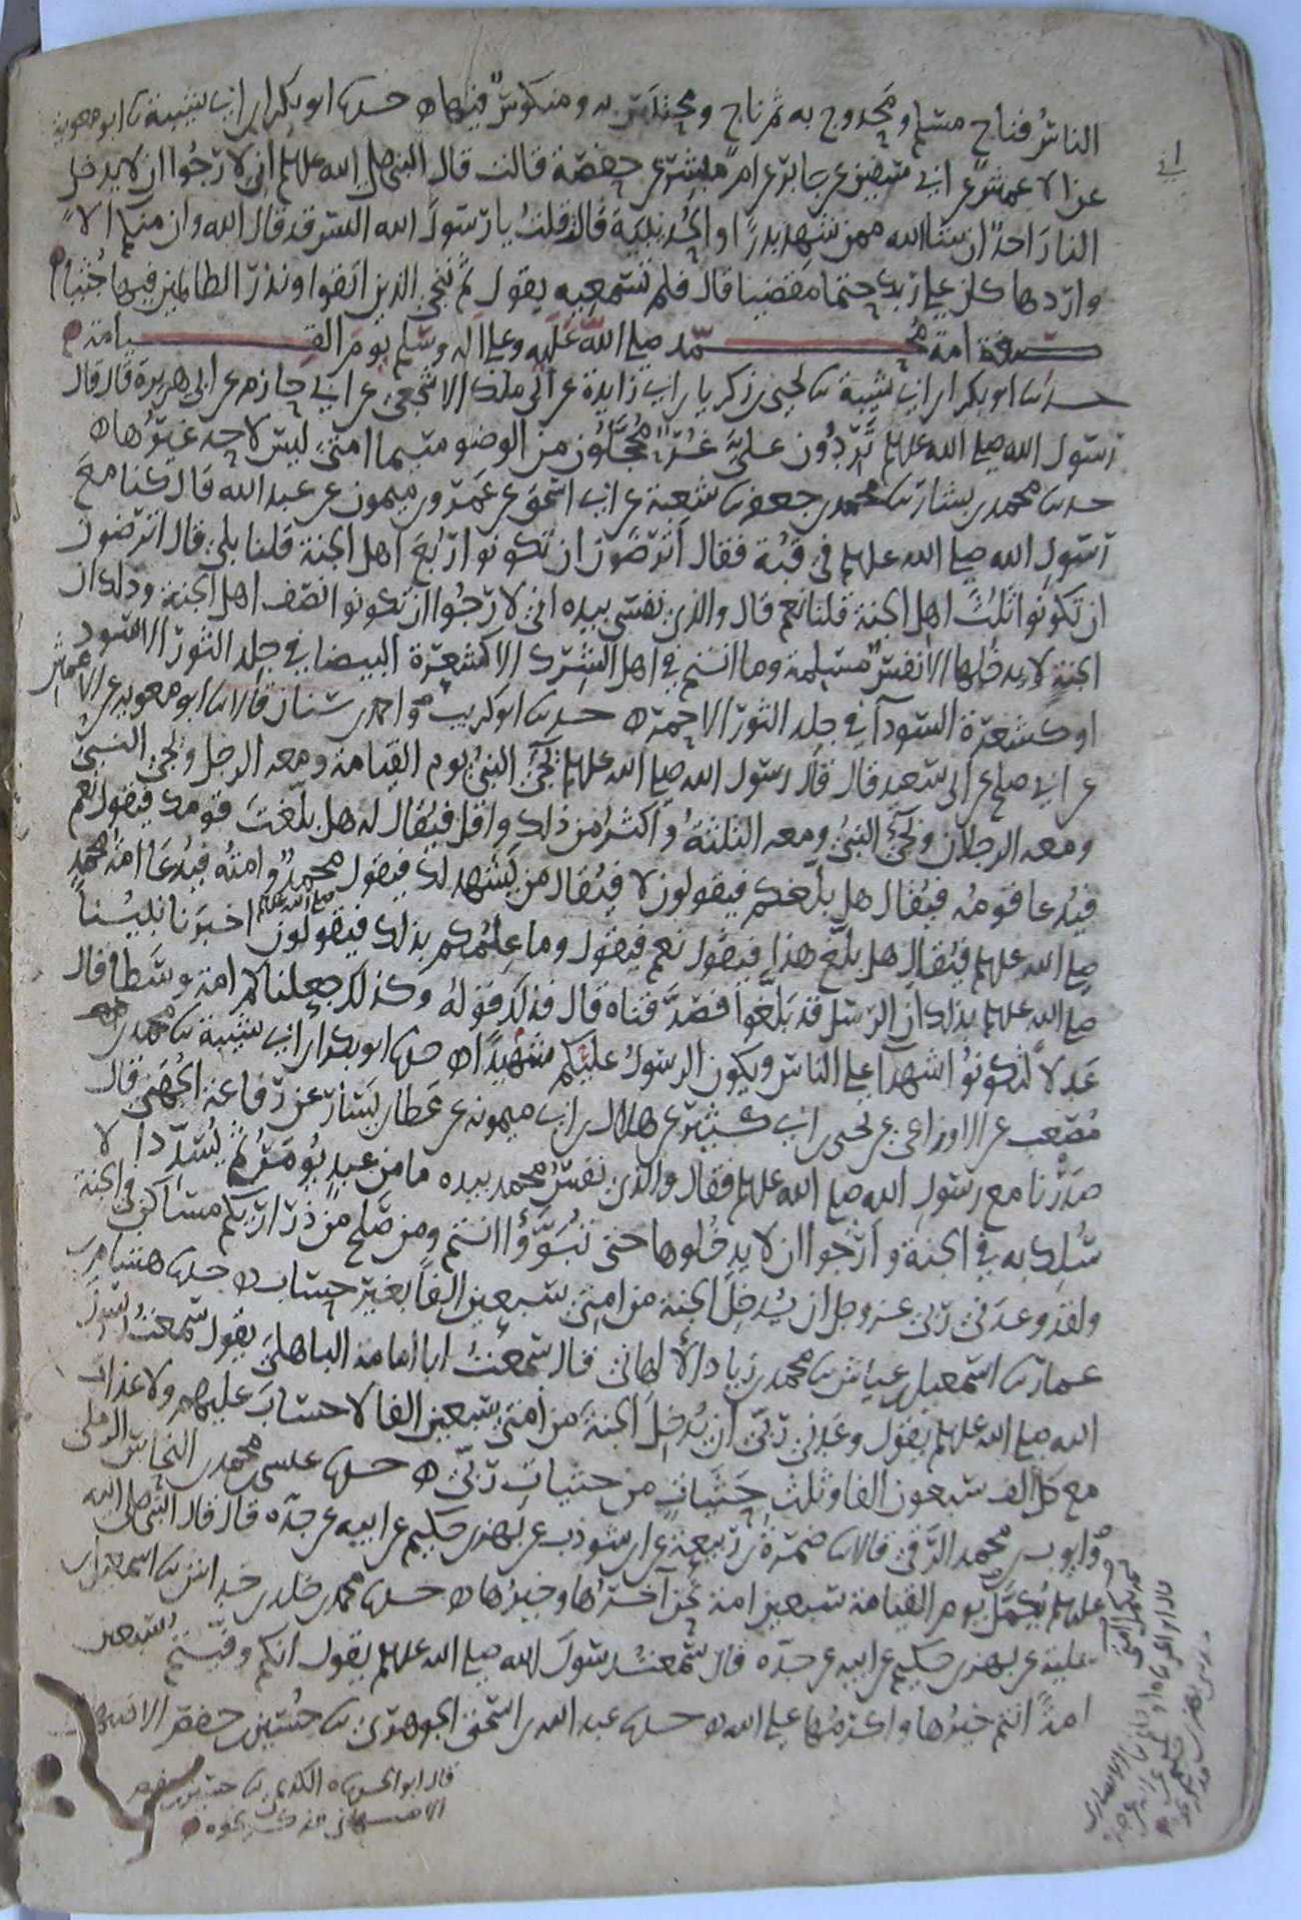 الناسُ فناج مسلم ومخدوج به ثم ناج ومحتبس به ومنكوس فيها ه حدثنا ابو بكر بن ابي شيبة ثنا ابو معوية
عن الاعمش عن ابي سفين عن جابر عن ام مبشر عن حفصة قالت قال النبي صلى الله عليه وسلم اني لارجوا ان لا يدخل
النار احدٌ ان شا الله ممن شهد بدرًا والحُديبية قالت قلتُ يا رسول الله اليس قد قال الله وان منكم الا
واردها كان على ربك حتما مقضيا قال فلم تسمعيه يقول ثم ننجي الذين اتقوا ونذر الظالمين فيها جُثيا ه
صفة امة محمد صلى الله عليه وعلى اله وسلم يوم القيامة
حدثنا ابو بكر بن ابي شيبة ثنا يحيى بن زكريا بن ابي زايدة عن ابي ملك الاشجعي عن ابي حازم عن ابي هريرة قال قال
رسول الله صلى الله عليه وسلم تَرِدُون عليَّ غُرًّا مُحَجَّلون من الوضو سيما امتي ليس لاحد غيرها ه
حدثنا محمد بن بشار ثنا محمد بن جعفر ثنا شعبة عن ابي اسحق عن عمرو بن ميمون عن عبد الله قال كنا مع
رسول الله صلى الله عليه وسلم في قبة فقال اترضون ان تكونوا ربع اهل الجنة قلنا بلى قال اترضون
ان تكونوا ثلث اهل الجنة قلنا نعم قال والذي نفسي بيده اني لارجوا ان تكونوا نصف اهل الجنة وذلك ان
الجنة لا يدخلها الا نفسٌ مسلمة وما انتم في اهل الشرك الا كشعرة البيضا في جلد الثور الاسود
او كشعرة السودآ في جلد الثور الاحمر ه حدثنا ابو كريب واحمد بن سنان قالا ثنا ابو معوية عن الاعمش
عن ابي صلح عن ابي سعيد قال قال رسول الله صلى الله عليه وسلم يجئ النبيُ يوم القيامة ومعه الرجل ويجي النبي
ومعه الرجلان ويجئ النبيُ ومعه الثلثةُ واكثرُ من ذلك واقل فيُقال له هل بلّغتَ قومك فيقول نعم
فيُدعا قومُه فيُقال هل بلّغكم فيقولون لا فيُقال من يشهد لك فيقول محمدٌ وامتُه فيُدعا امةُ محمدٍ
صلى الله عليه وسلم فيُقال هل بلّغ هذا فيقول نعم فيقول وما علمُكم بذلك فيقولون اخبرنا نبيُنا
صلى الله عليه وسلم
صلى الله عليه وسلم بذلك ان الرسل قد بلّغوا فصدّقناه قال فذلك قوله وكذلك جعلناكم امة وسطا قال
عَدلًا لتكونوا شهدآ على الناس ويكون الرسول عليكم شهيدًا ه حدثنا ابو بكر بن ابي شيبة ثنا محمد بن
مُصعب عن الاوزاعي عن يحيى بن ابي كثير عن هلال بن ابي ميمونة عن عطا بن يسار عن رفاعة الجهني قال
صَدَرْنا مع رسول الله صلى الله عليه وسلم فقال والذي نفسُ محمد بيده ما من عبدٍ يُؤمِنُ ثم يُسدِّدُ الا
سُلك به في الجنة وارجوا ان لا يدخلوها حتى تبوّؤا انتم ومن صلح من ذراريكم مساكن في الجنة
ولقد وعدني ربي عز وجل ان يُدخِل الجنة من امتي سبعين الفًا بغير حساب ه حدثنا هشام بن
عمار ثنا اسمعيل بن عياش ثنا محمد بن زياد الالهاني قال سمعتُ ابا امامة الباهلي يقول سمعتُ رسول
الله صلى الله عليه وسلم يقول وعدني ربي ان يُدخِل الجنة من امتي سبعين الفا لا حساب عليهم ولا عذاب
مع كل الف سبعون الفا وثلث حَثَيات من حثيات ربي ه حدثنا عيسى بن محمد بن النحاس الرملي
وايوب بن محمد الرقي قالا ثنا ضمرة بن ربيعة عن ابن شوذب عن بهز بن حكيم عن ابيه عن جده قال قال النبي صلى الله
عليه وسلم نُكمل يوم القيامة سبعين امة نحن آخرُها وخيرُها ه حدثنا محمد بن خلد بن خداش ثنا اسمعيل بن
علية عن بهز بن حكيم عن ابيه عن جده قال سمعتُ رسول الله صلى الله عليه وسلم يقول انكم وفيتم سبعين
امةً انتم خيرُها واكرمُها على الله ه حدثنا عبد الله بن اسحق الجوهري ثنا حُسين بن حفص الاصبهاني
قال ابو الحسن ثناه الكديمي ثنا حسين بن حفص
الاصبهاني فذكر نحوه ه